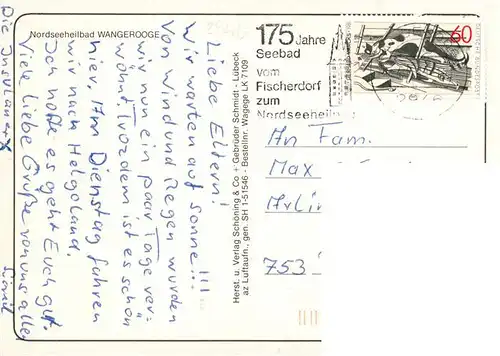 Nordseeheilbad WANGEROOGE
Liebe Eltern!
Wir warten auf Sonne!!!
Von Wind und Regen wurden
wir nun ein paar Tage ver-
wöhnt. Trozdem ist es schön
hier. Am Dienstag fahren
wir nach Helgoland.
Ich hoffe es geht Euch gut.
Viele liebe Grüße von uns allen
Die Insulaner
Herst. u. Verlag Schöning & Co + Gebrüder Schmidt - Lübeck
az Luftaufn., gen. SH 1-51546 - Bestellnr. Wagege LK 7109
175 Jahre
Seebad
vom
Fischerdorf
zum
Nordseeheilb
60
An Fam.
Max
753